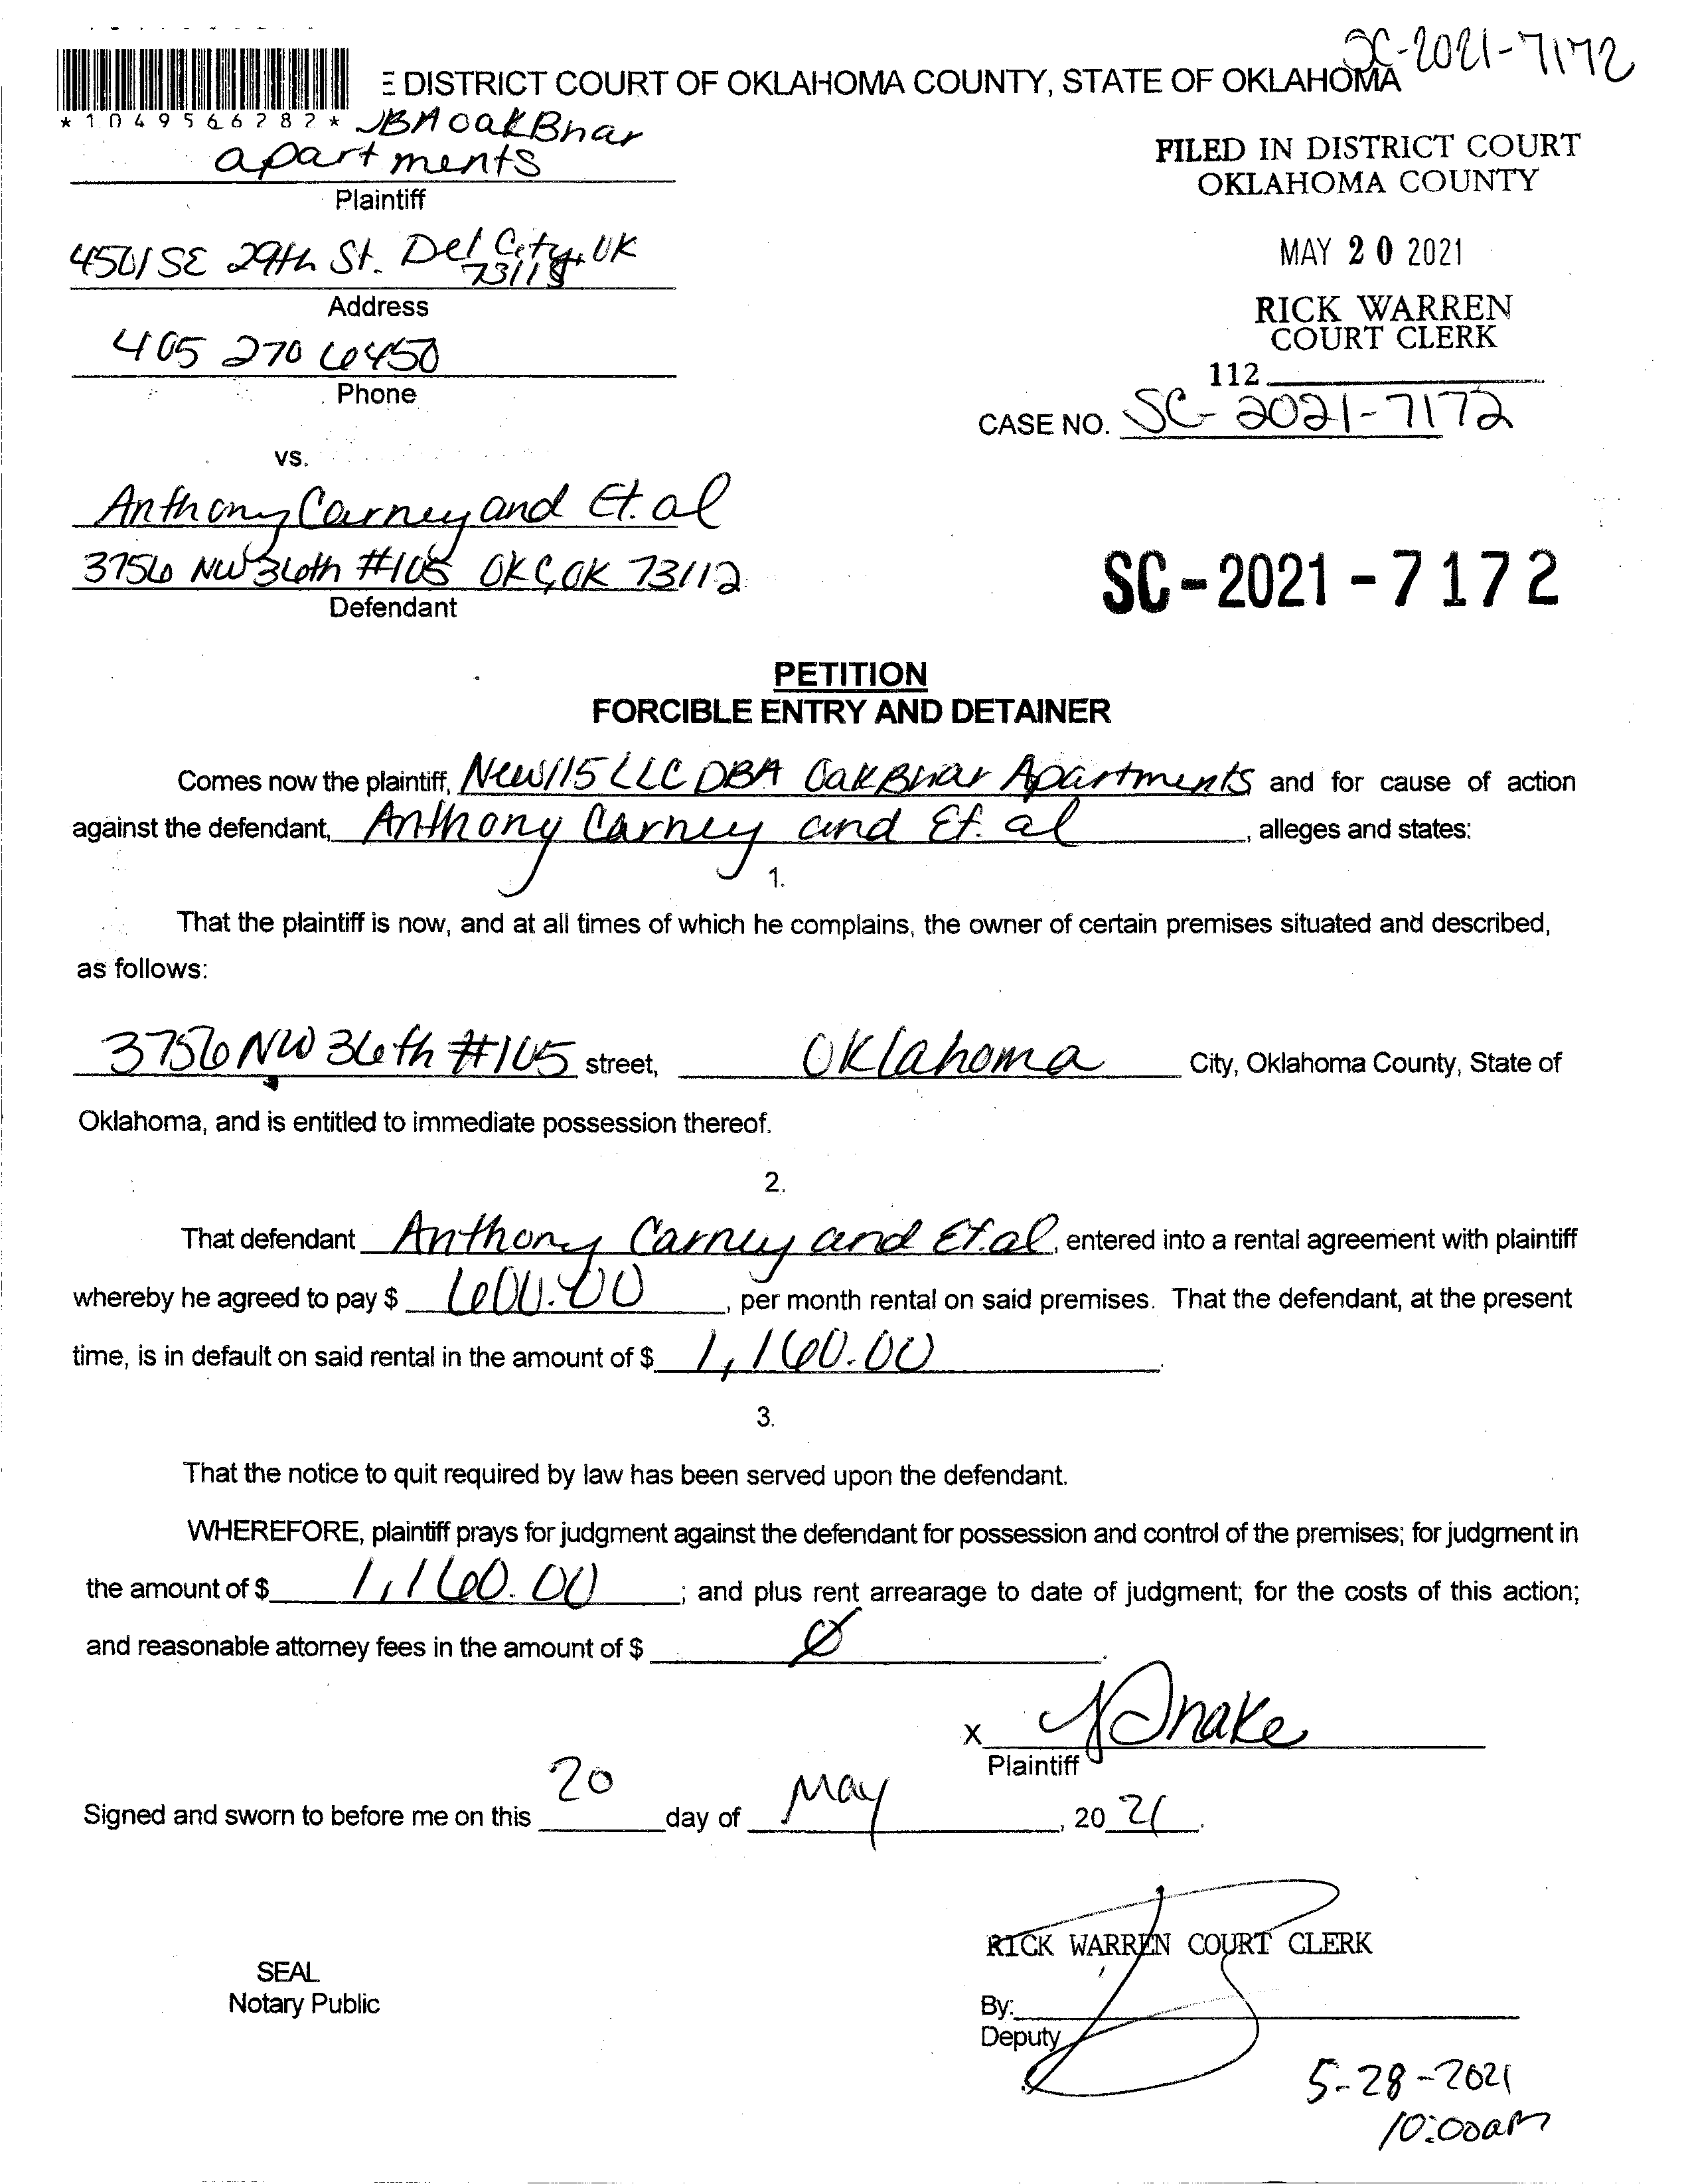 SC-2021-7172
E DISTRICT COURT OF OKLAHOMA COUNTY, STATE OF OKLAHOMA
*1049566282*
DBA Oak Briar
apartments
Plaintiff
FILED IN DISTRICT COURT
OKLAHOMA COUNTY
4501 SE 29th St. Del City, OK
73115
Address
MAY 20 2021
RICK WARREN
COURT CLERK
405 270 6450
Phone
112
CASE NO. SC-2021-7172
vs.
Anthony Carney and Et. al
3756 NW 36th #105 OKC, OK 73112
Defendant
SC-2021-7172
PETITION
FORCIBLE ENTRY AND DETAINER
Comes now the plaintiff, New 115 LLC DBA Oak Briar Apartments and for cause of action
against the defendant, Anthony Carney and Et. al, alleges and states:
1.
That the plaintiff is now, and at all times of which he complains, the owner of certain premises situated and described,
as follows:
3756 NW 36th #105 street, Oklahoma City, Oklahoma County, State of
Oklahoma, and is entitled to immediate possession thereof.
2.
That defendant Anthony Carney and Et. al, entered into a rental agreement with plaintiff
whereby he agreed to pay $ 600.00, per month rental on said premises. That the defendant, at the present
time, is in default on said rental in the amount of $ 1,160.00.
3.
That the notice to quit required by law has been served upon the defendant.
WHEREFORE, plaintiff prays for judgment against the defendant for possession and control of the premises; for judgment in
the amount of $ 1,160.00; and plus rent arrearage to date of judgment; for the costs of this action;
and reasonable attorney fees in the amount of $ Ø.
X
Plaintiff
Signed and sworn to before me on this 20 day of May, 2021.
RICK WARREN COURT CLERK
SEAL
Notary Public
By:
Deputy
5-28-2021
10:00am